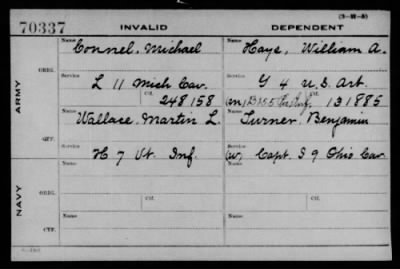 (3-W-5)
70337 INVALID DEPENDENT
Name Name
Connel, Michael Hays, William A.
ORIG.
Service Service
L 11 Mich Cav. G 4 U.S. Art.
Ctf. 248158 (m) Ctf. 131885
ARMY
Name Name
Wallace, Martin L. Turner, Benjamin
CTF.
Service Service
H 7 Vt. Inf. (W) Capt. I 9 Ohio Cav
Name Name
ORIG.
NAVY
Ctf. Ctf.
Name Name
CTF.